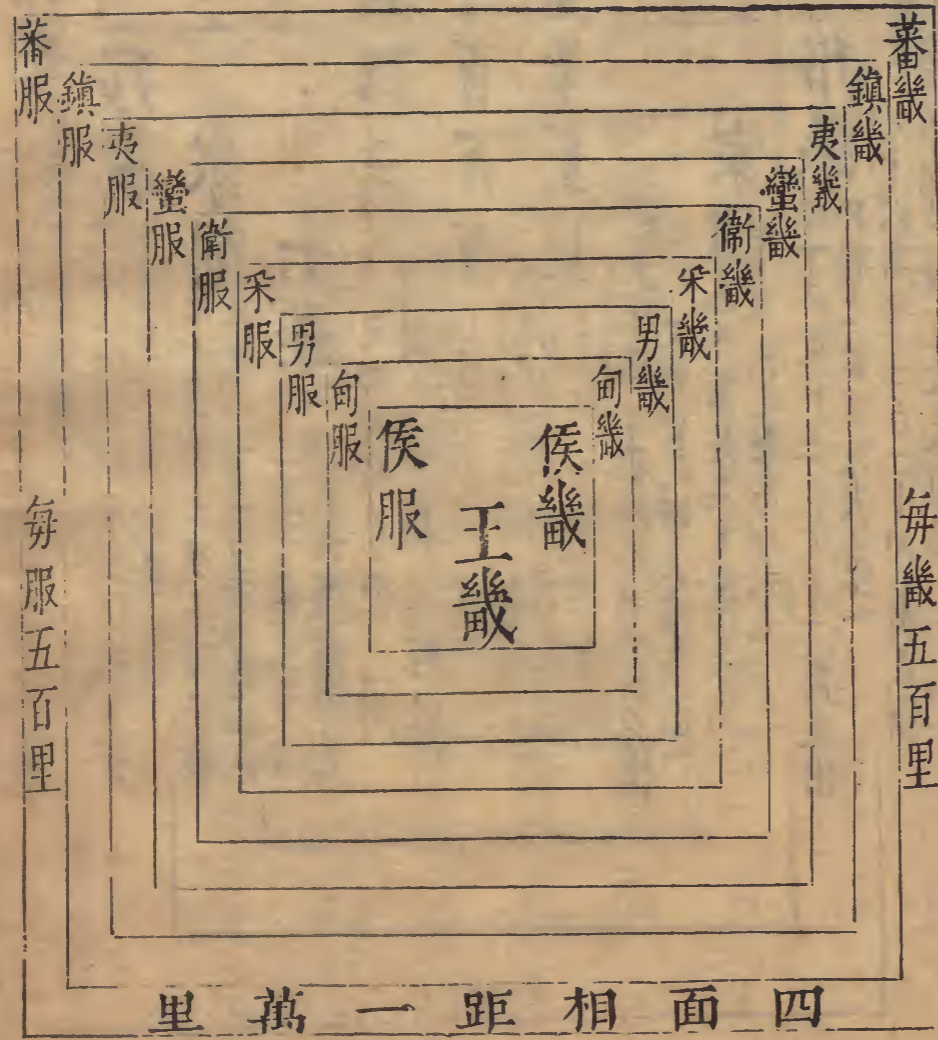 蕃畿
每畿五百里
鎮畿
夷畿
蠻畿
衛畿
采畿
男畿
甸畿
侯畿
王畿
侯服
甸服
男服
采服
衛服
蠻服
夷服
鎮服
蕃服
每服五百里
四面相距一萬里